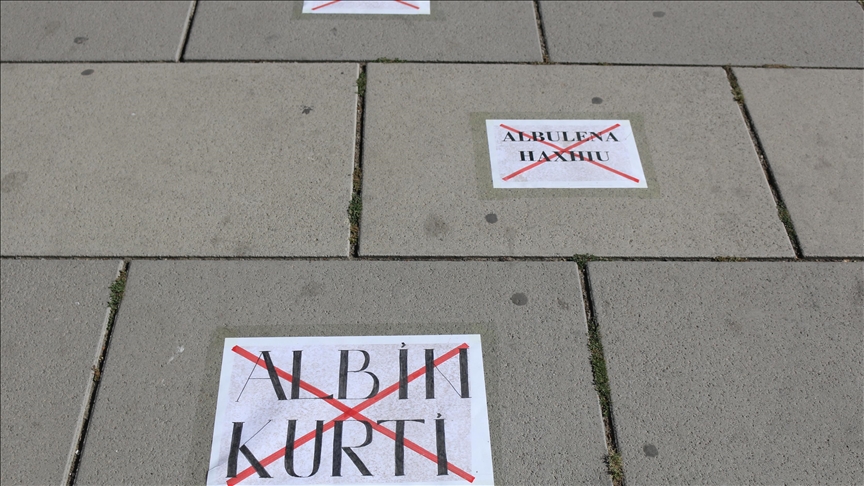 ALBULENA
HAXHIU
ALBİN
KURTİ